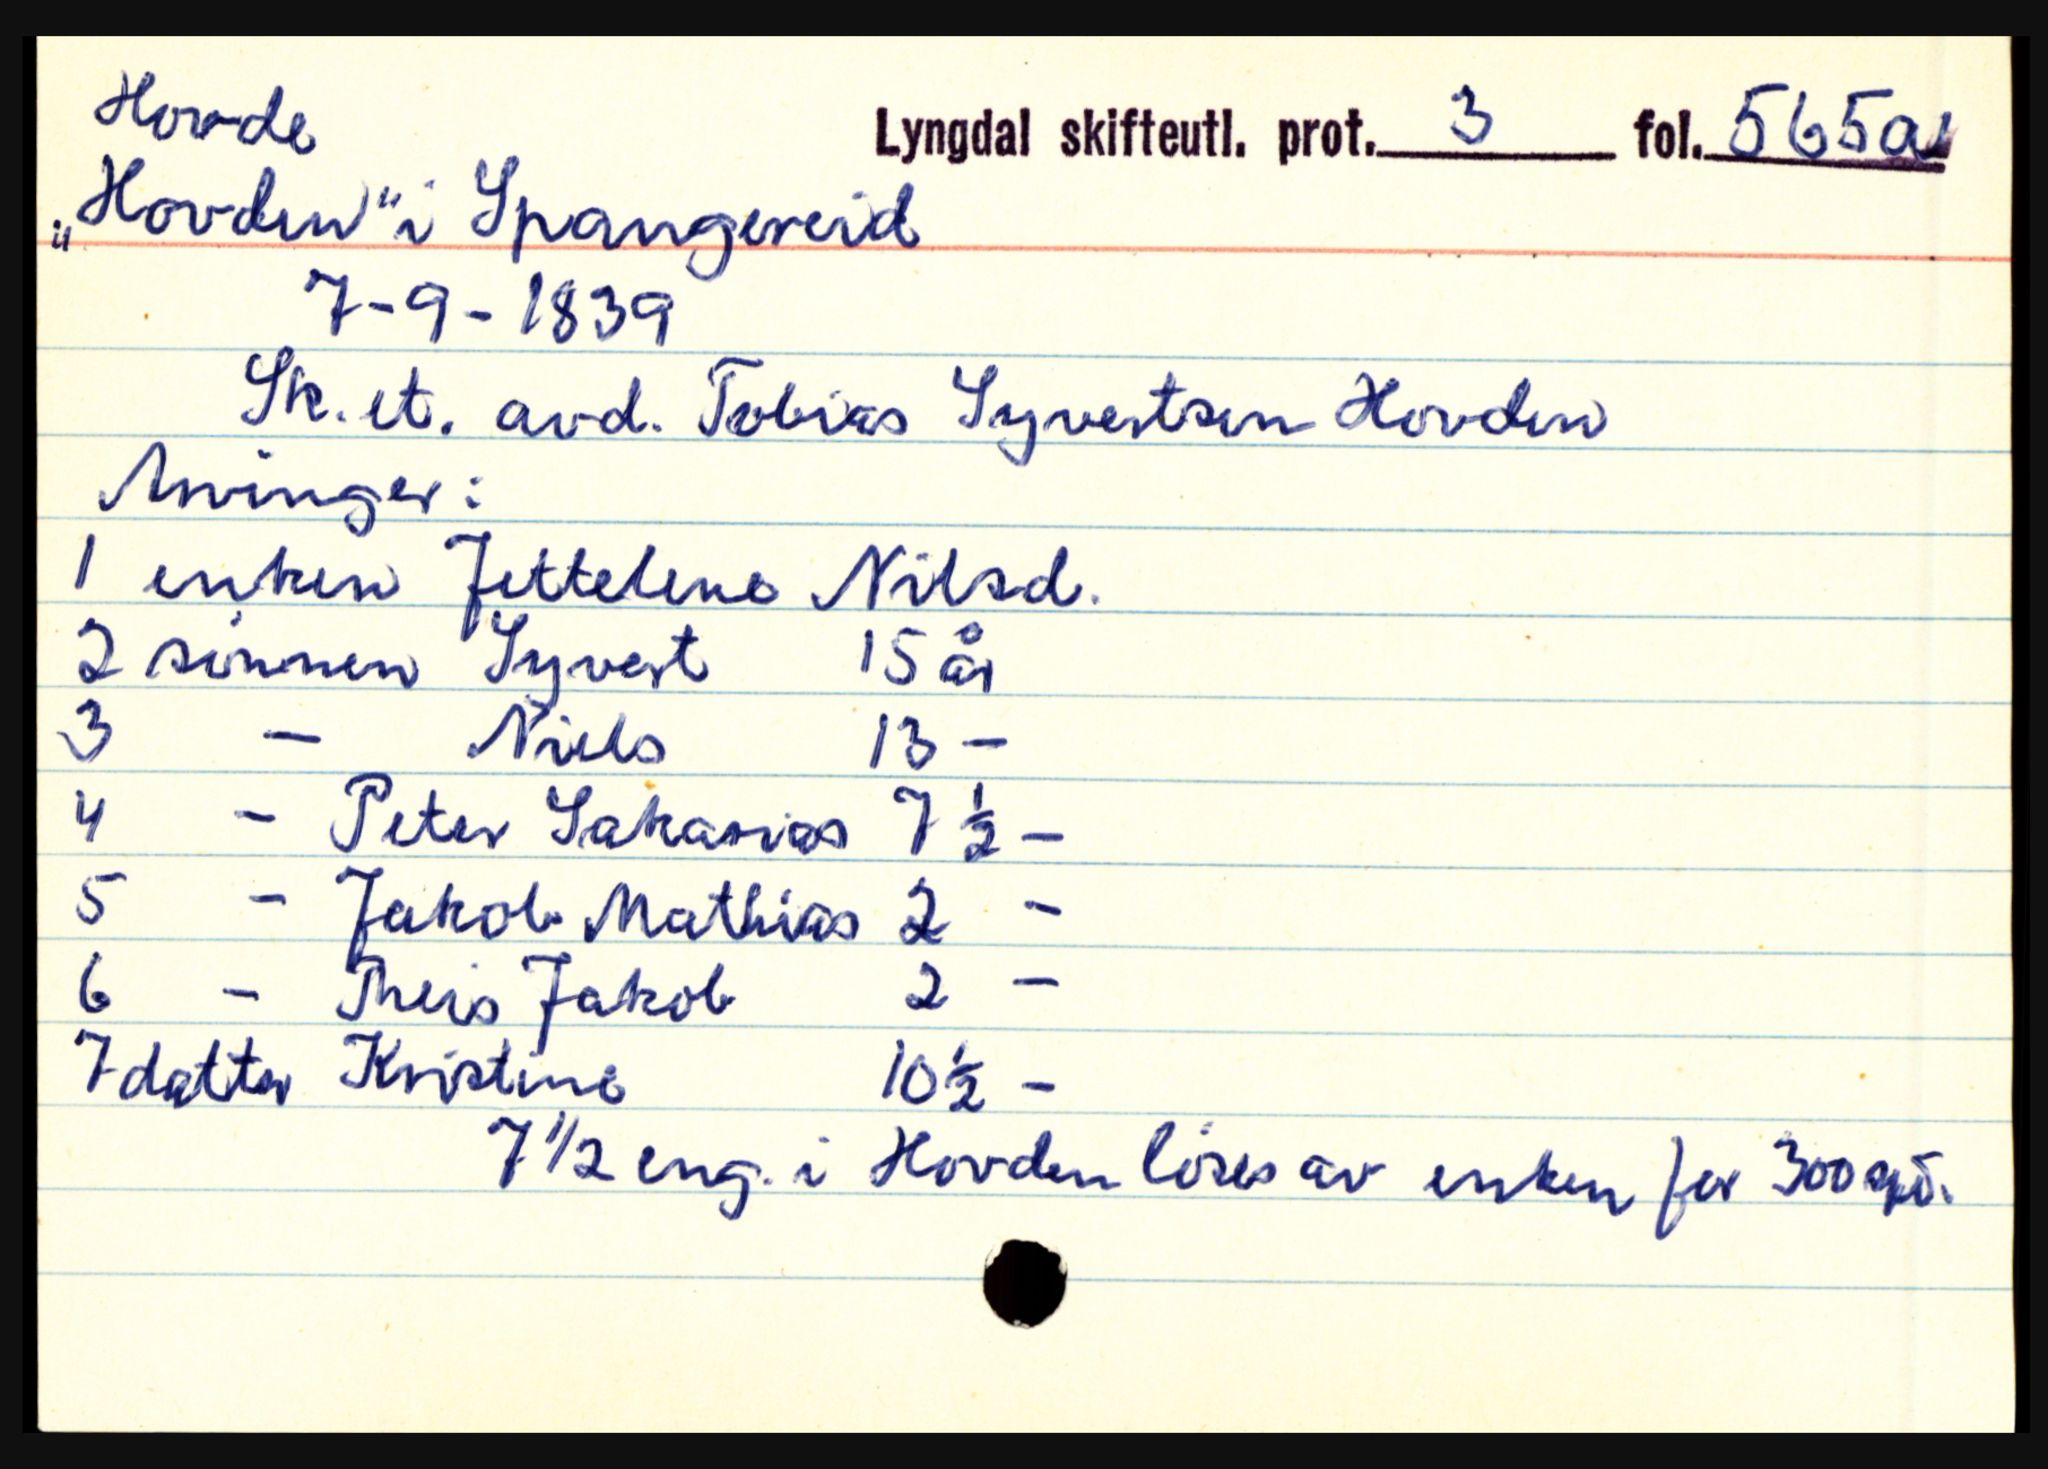 Hovde
Lyngdal skifteutl. prot. 3 fol. 565a
„Hovden" i Spangereid
7-9-1839
Sk. et. avd. Tobias Syvertsen Hovden
Arvinger:
1 enken Jettelene Nilsd.
2 sönnen Syvert 15 år
3 - Niels 13 -
4 - Peter Sakarias 7 1/2 -
5 - Jakob Mathias 2 -
6 - Theis Jakob 2 -
7 datter Kristine 10 1/2 -
7 1/2 eng. i Hovden löses av enken for 300